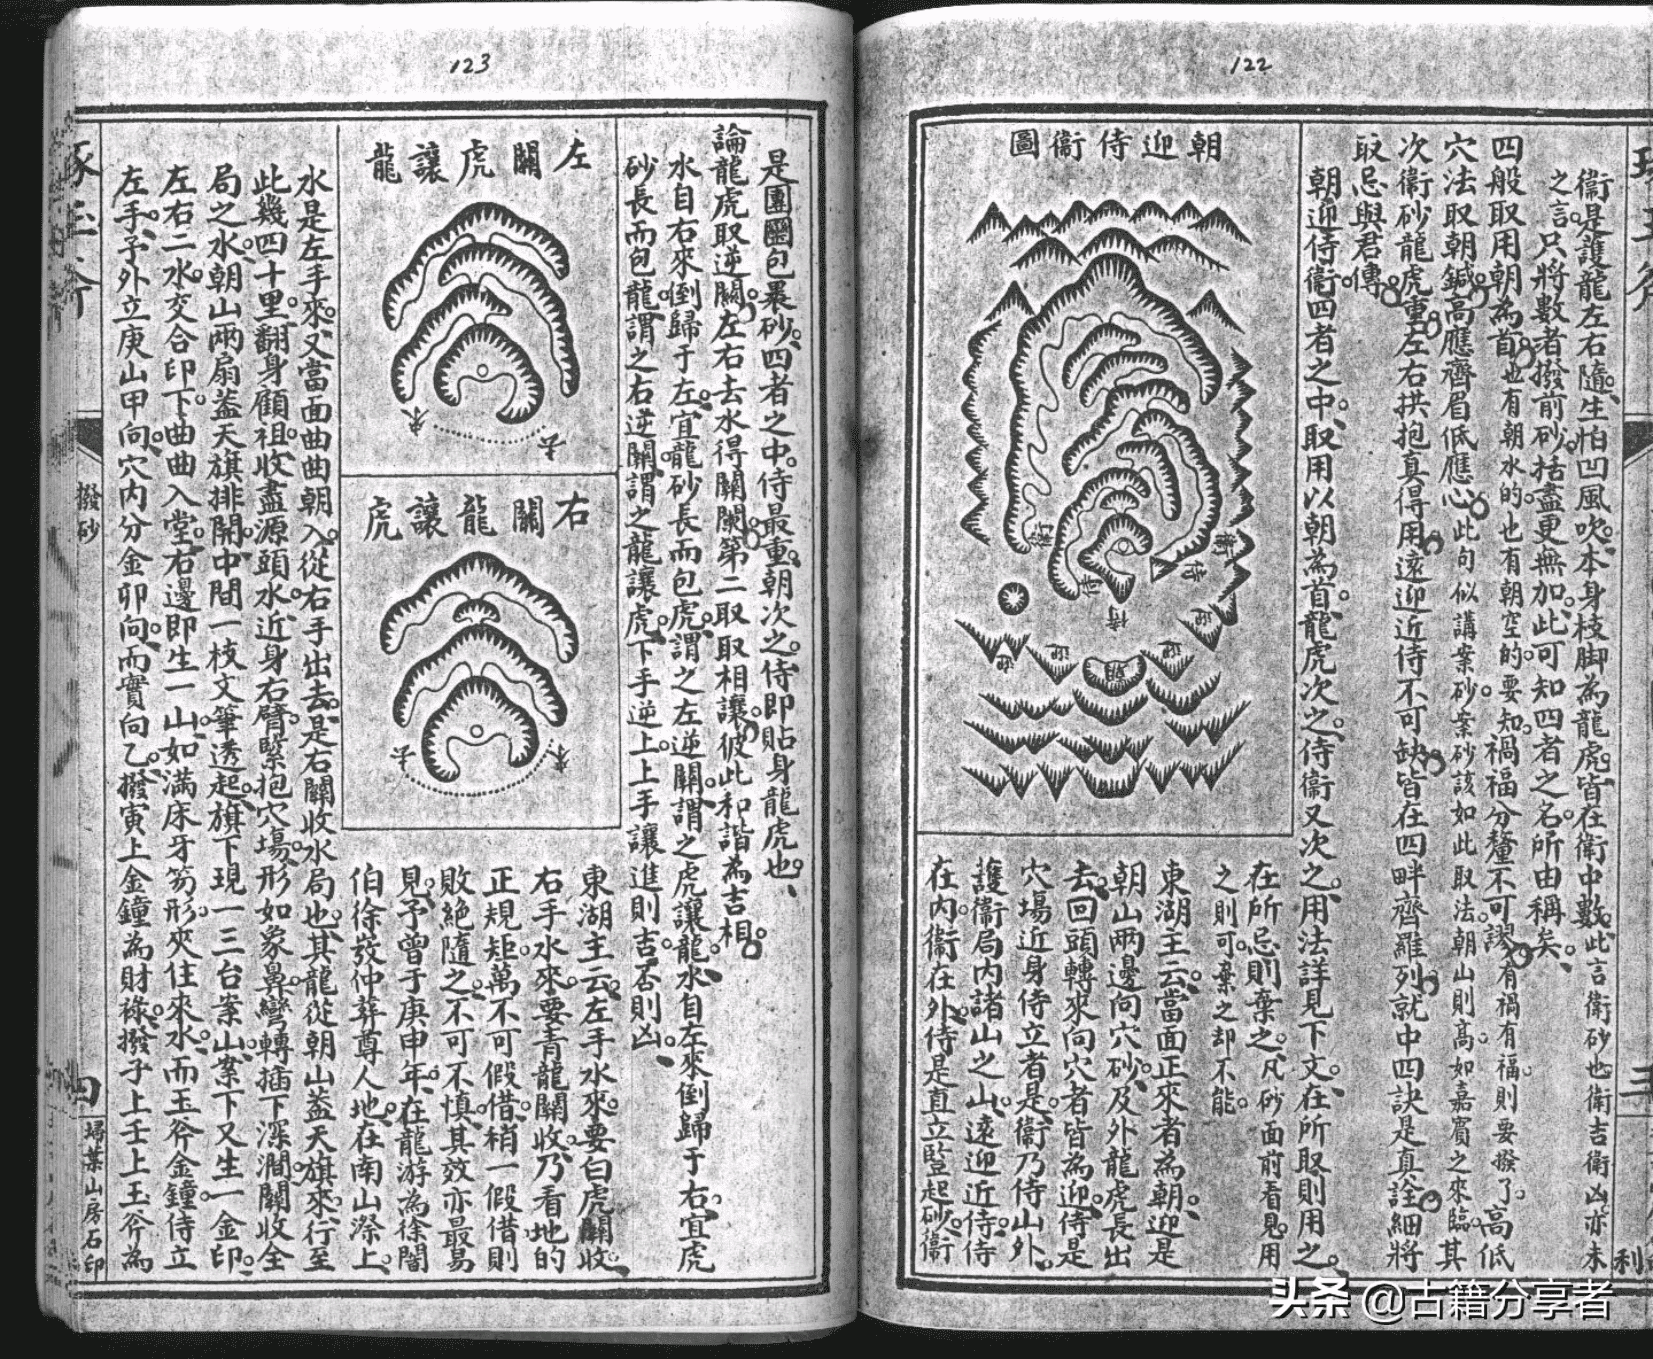 122
衞是護龍左右隨生怕凹風吹本身枝脚為龍虎皆在衞中數此言衛砂也衛吉衛凶亦未
之言只將數者撥前砂括盡更無加此可知四者之名所由稱矣
四般取用朝為首也有朝水的也有朝空的要知禍福分釐不可謬有禍有福則要撥了高低
穴法取朝鍼高應齊眉低應心此句似講案砂案砂該如此取法朝山則高如嘉賓之來臨其
次衞砂龍虎重左右拱抱真得用遠迎近侍不可缺皆在四畔齊羅列就中四訣是真詮細將
取忌與君傳
朝迎侍衞四者之中取用以朝為首龍虎次之侍衞又次之用法詳見下文在所取則用之
在所忌則棄之凡砂面前看見用
之則可棄之却不能
東湖主云當面正來者為朝迎是
朝山兩邊向穴砂及外龍虎長出
去回頭轉來向穴者皆為迎侍是
穴塲近身侍立者是衞乃侍山外
護衞局內諸山之山遠迎近侍侍
在內衞在外侍是直立竪起砂衞
朝迎侍衞圖
衞
衞
侍
侍
侍
迎
迎
迎
迎
朝
三
利
123
是團圞包裹砂四者之中侍最重朝次之侍即貼身龍虎也
論龍虎取逆關左右去水得關闌第二取取相讓彼此和諧為吉相
水自右來倒歸于左宜龍砂長而包虎謂之左逆關謂之虎讓龍水自左來倒歸于右宜虎
砂長而包龍謂之右逆關謂之龍讓虎下手逆上上手讓進則吉否則凶
左關虎讓龍
來
去
右關龍讓虎
來
去
東湖主云左手水來要白虎關收
右手水來要青龍關收乃看地的
正規矩萬不可假借稍一假借則
敗絕隨之不可不慎其效亦最易
見予曾于庚申年在龍游為徐闇
伯徐發仲葬尊人地在南山漈上
水是左手來又當面曲曲朝入從右手出去是右關收水局也其龍從朝山蓋天旗來行至
此幾四十里翻身顧祖收盡源頭水近身右臂緊抱穴塲形如象鼻彎轉插下深澗關收全
局之水朝山兩扇蓋天旗排開中間一枝文筆透起旗下現一三台案山案下又生一金印
左右二水交合印下曲曲入堂右邊即生一山如滿床牙笏形夾住來水而玉斧金鐘侍立
左手予外立庚山甲向穴內分金卯向而實向乙撥寅上金鐘為財祿撥子上壬上玉斧為
撥砂
四
埽葉山房石印
头条 @古籍分享者